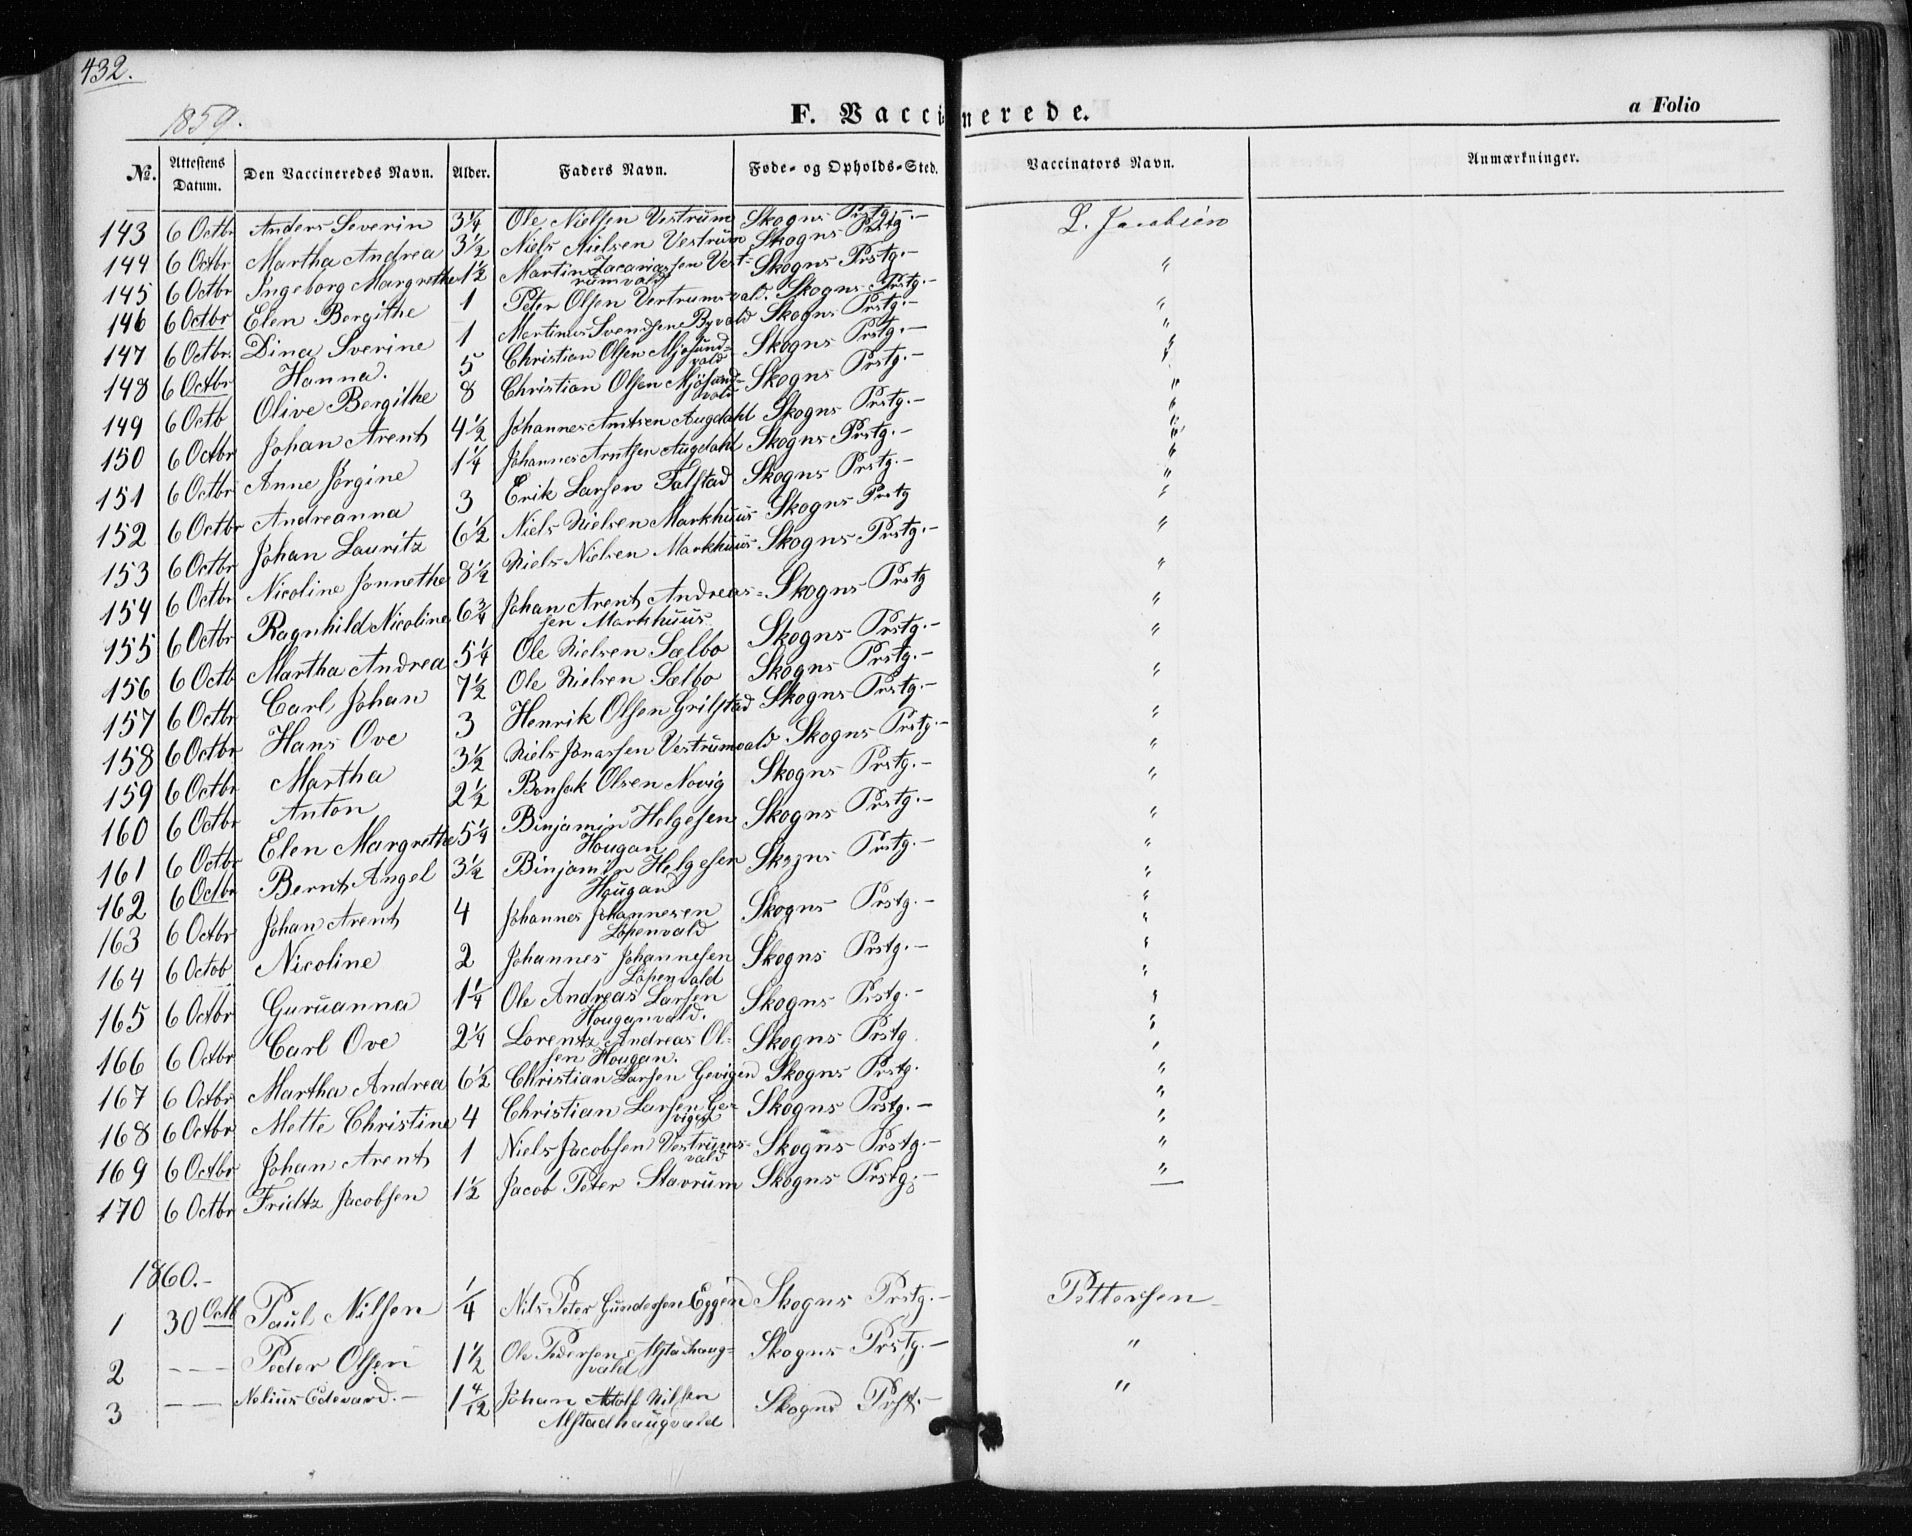 432.
1859.
F. Vaccinerede.
a Folio
№. Attestens Datum. Den Vaccineredes Navn. Alder. Faders Navn. Føde- og Opholds-Sted. Vaccinators Navn. Anmærkninger.
143 6 Octbr Anders Severin 3¼ Ole Nielsen Vestrum Skogns Prstg.- L. Jacobsen
144 6 Octbr Martha Andrea 3½ Niels Nielsen Vestrum Skogns Prstg "
145 6 Octbr Ingeborg Margrethe 1½ Martin Zacariassen Vest-
rumvald Skogns Prstg.-
146 6 Octbr Elen Bergithe 1 Peter Olsen Vestrumsvald. Skogns Prstg.- "
147 6 Octbr. Dina Sverine 1 Martinus Svendsen Byvald Skogns Prstg.- "
148 6 Octbr Hanna. 5 Christian Olsen Mjøsund-
vald Skogns Prstg.- "
149 6 Octb Olive Bergithe 8 Christian Olsen Mjösund-
vald Skogns Prstg.- "
150 6 Octbr Johan Arent 4½ Johannes Arntsen Augdahl Skogns Prstg.- "
151 6 Octbr Anne Jørgine 1¼ Johannes Arntsen Augdahl Skogns Prstg.- "
152 6 Octbr Andreanna 3 Erik Larsen Falstad Skogns Prstg.- "
153 6 Octbr Johan Lauritz 6½ Niels Nielsen Markhuus Skogns Prstg "
154 6 Octbr Nicoline Jonnethe 8½ Niels Nielsen Markhuus Skogns Prstg.- "
155 6 Octbr Ragnhild Nicoline 6¾ Johan Arent Andreas-
sen Markhuus Skogns Prstg "
156 6 Octb Martha Andrea 5¼ Ole Nielsen Sælbo Skogns Prstg.- "
157 6 Octbr Carl Johan 7½ Ole Nielsen Sælbo Skogns Prstg.- "
158 6 Octbr Hans Ove 3 Henrik Olsen Grilstad Skogns Prstg.- "
159 6 Octbr Martha 3½ Niels Jonassen Vestrumvald Skogns Prstg.- "
160 6 Octbr Anton 2½ Bensak Olsen Novig Skogns Prstg.- "
161 6 Octbr Elen Margrethe 5¼ Binjamin Helgesen
Hougan Skogns Prstg.- "
162 6 Octbr Bernt Angel 3½ Binjamin Helgesen
Hougan Skogns Prstg.- "
163 6 Octbr Johan Arent 4 Johannes Johannesen
Løsenvald Skogns Prstg.- "
164 6 Octob Nicoline 2 Johannes Johannesen
Løsenvald Skogns Prstg.- "
165 6 Octbr Guruanna 1¼ Ole Andreas Larsen
Houganvald. Skogns Prstg.- "
166 6 Octbr Carl Ove 2¼ Lorentz Andreas Ol-
sen Hougan. Skogns Prstg. "
167 6 Octbr Martha Andrea 6½ Christian Larsen Gevigen Skogns Prstg. "
168 6 Octbr Mette Christine 4 Christian Larsen Ge-
vigen Skogns Prstg.- "
169 6 Octbr Johan Arent 1 Niels Jacobsen Vestrums-
vald Skogns Prstg.- "
170 6 Octbr Fridtz Jacobsen 1½ Jacob Peter Stavrum Skogns Prstg.- "
1860.-
1 30 Octb Paul Nilsen ¼ Nils Peter Gundersen Eggen Skogns Prstg.- Pettersen
2 --- Peder Olsen 1½ Ole Pedersen Alstadhaug-
vald Skogns Prstg.- "
3 --- Nelius Edevard.- 1 4/12 Johan Adolf Nilsen
Alstadhaugvald Skogns Prst.- "